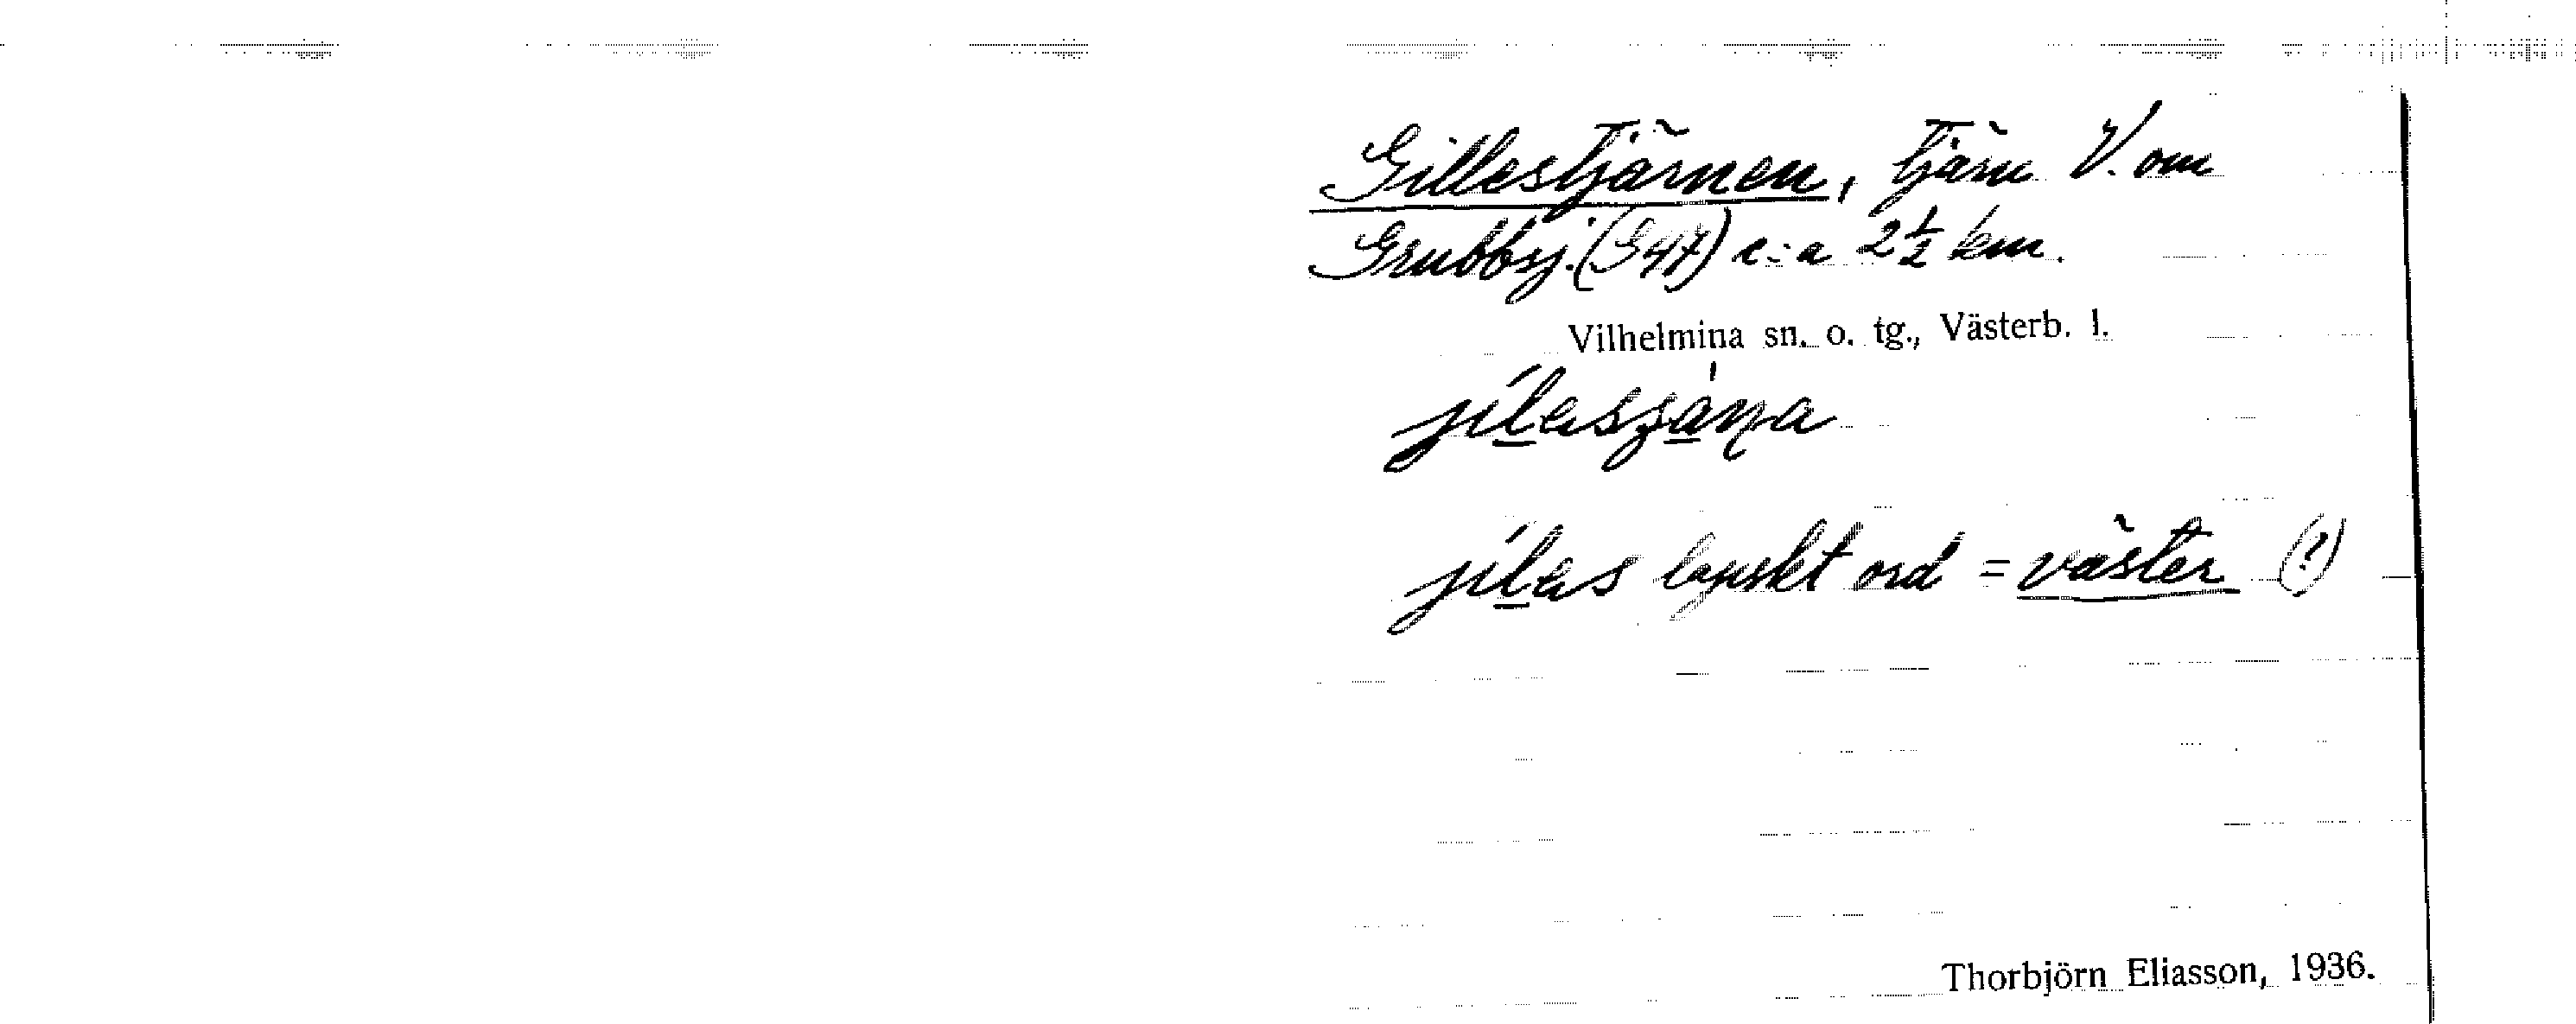 Gillestjärnen, tjärn V. om
Grubbsj. (G47) c:a 2½ km.
Vilhelmina sn. o. tg., Västerb. l.
jiles lapskt ord = väster (?)
Thorbjörn Eliasson, 1936.